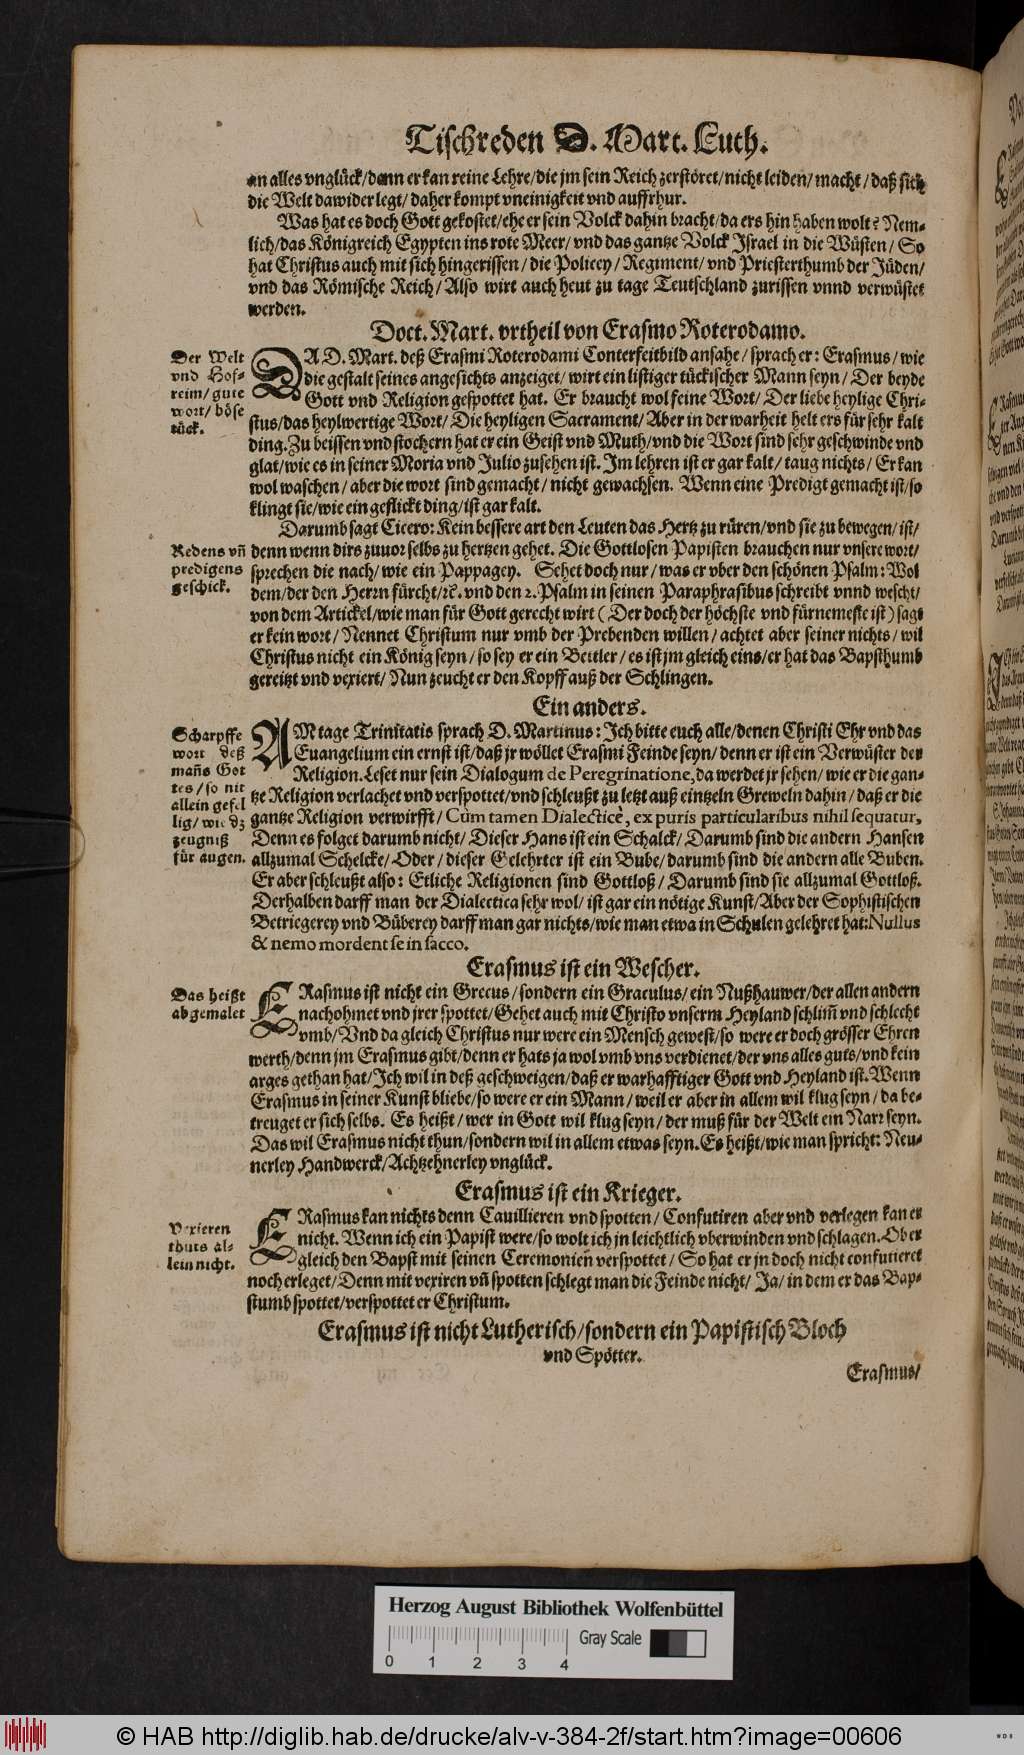 Tischreden D. Mart. Luth.
an alles vnglück/denn er kan reine Lehre/die jm sein Reich zerstöret/nicht leiden/macht/daß sich
die Welt dawider legt/daher kompt vneinigkeit vnd auffrhur.
Was hat es doch Gott gekostet/ehe er sein Volck dahin bracht/da ers hin haben wolt? Nem-
lich/das Königreich Egypten ins rote Meer/vnd das gantze Volck Israel in die Wüsten/So
hat Christus auch mit sich hingerissen/die Policey/Regiment/vnd Priesterthumb der Jüden/
vnd das Römische Reich/Also wirt auch heut zu tage Teutschland zurissen vnnd verwüstet
werden.
Doct. Mart. vrtheil von Erasmo Roterodamo.
Der Welt
vnd Hof-
reim/gute
wort/böse
tück.
DA D. Mart. deß Erasmi Roterodami Conterfeitbild ansahe/sprach er: Erasmus/wie
die gestalt seines angesichts anzeiget/wirt ein listiger tückischer Mann seyn/Der beyde
Gott vnd Religion gespottet hat. Er braucht wol feine Wort/Der liebe heylige Chri-
stus/das heylwertige Wort/Die heyligen Sacrament/Aber in der warheit helt ers für sehr kalt
ding. Zu beissen vnd stochern hat er ein Geist vnd Muth/vnd die Wort sind sehr geschwinde vnd
glat/wie es in seiner Moria vnd Julio zusehen ist. Im lehren ist er gar kalt/taug nichts/Er kan
wol waschen/aber die wort sind gemacht/nicht gewachsen. Wenn eine Predigt gemacht ist/so
klingt sie/wie ein geflickt ding/ist gar kalt.
Darumb sagt Cicero: Kein bessere art den Leuten das Hertz zu rüren/vnd sie zu bewegen/ist/
Redens vñ
predigens
geschick.
denn wenn dirs zuuor selbs zu hertzen gehet. Die Gottlosen Papisten brauchen nur vnsere wort/
sprechen die nach/wie ein Pappagey. Sehet doch nur/was er vber den schönen Psalm: Wol
dem/der den Herrn fürcht/rc. vnd den 2. Psalm in seinen Paraphrasibus schreibt vnnd wescht/
von dem Artickel/wie man für Gott gerecht wirt (Der doch der höchste vnd fürnemeste ist) sagt
er kein wort/Nennet Christum nur vmb der Prebenden willen/achtet aber seiner nichts/wil
Christus nicht ein König seyn/so sey er ein Bettler/es ist jm gleich eins/er hat das Bapsthumb
gereitzt vnd vexiert/Nun zeucht er den Kopff auß der Schlingen.
Ein anders.
Scharpffe
wort deß
mañs Got
tes/so nit
allein gefel
lig/wie dz
zeugniß
für augen.
AM tage Trinitatis sprach D. Martinus: Ich bitte euch alle/denen Christi Ehr vnd das
Euangelium ein ernst ist/daß jr wöllet Erasmi Feinde seyn/denn er ist ein Verwüster der
Religion. Leset nur sein Dialogum de Peregrinatione, da werdet jr sehen/wie er die gan-
tze Religion verlachet vnd verspottet/vnd schleußt zu letzt auß eintzeln Greweln dahin/daß er die
gantze Religion verwirfft/Cùm tamen Dialecticè, ex puris particularibus nihil sequatur,
Denn es folget darumb nicht/Dieser Hans ist ein Schalck/Darumb sind die andern Hansen
allzumal Schelcke/Oder/dieser Gelehrter ist ein Bube/darumb sind die andern alle Buben.
Er aber schleußt also: Etliche Religionen sind Gottloß/Darumb sind sie allzumal Gottloß.
Derhalben darff man der Dialectica sehr wol/ist gar ein nötige Kunst/Aber der Sophistischen
Betriegerey vnd Büberey darff man gar nichts/wie man etwa in Schulen gelehret hat: Nullus
& nemo mordent se in sacco.
Erasmus ist ein Wescher.
Das heißt
abgemalet
ERasmus ist nicht ein Grecus/sondern ein Graculus/ein Nußhauwer/der allen andern
nachohmet vnd jrer spottet/Gehet auch mit Christo vnserm Heyland schlim̃ vnd schlecht
vmb/Vnd da gleich Christus nur were ein Mensch gewest/so were er doch grösser Ehren
werth/denn jm Erasmus gibt/denn er hats ja wol vmb vns verdienet/der vns alles guts/vnd kein
arges gethan hat/Ich wil in deß geschweigen/daß er warhafftiger Gott vnd Heyland ist. Wenn
Erasmus in seiner Kunst bliebe/so were er ein Mann/weil er aber in allem wil klug seyn/da be-
treuget er sich selbs. Es heißt/wer in Gott wil klug seyn/der muß für der Welt ein Narr seyn.
Das wil Erasmus nicht thun/sondern wil in allem etwas seyn. Es heißt/wie man spricht: Neu-
nerley Handwerck/Achtzehnerley vnglück.
Erasmus ist ein Krieger.
Vexieren
thuts al-
lein nicht.
ERasmus kan nichts denn Cauillieren vnd spotten/Confutiren aber vnd verlegen kan er
nicht. Wenn ich ein Papist were/so wolt ich jn leichtlich vberwinden vnd schlagen. Ob er
gleich den Bapst mit seinen Ceremonien verspottet/So hat er jn doch nicht confutieret
noch erleget/Denn mit vexiren vñ spotten schlegt man die Feinde nicht/Ja/in dem er das Bap-
stumb spottet/verspottet er Christum.
Erasmus ist nicht Lutherisch/sondern ein Papistisch Bloch
vnd Spötter.
Erasmus/
Herzog August Bibliothek Wolfenbüttel
Gray Scale
0 1 2 3 4
© HAB http://diglib.hab.de/drucke/alv-v-384-2f/start.htm?image=00606